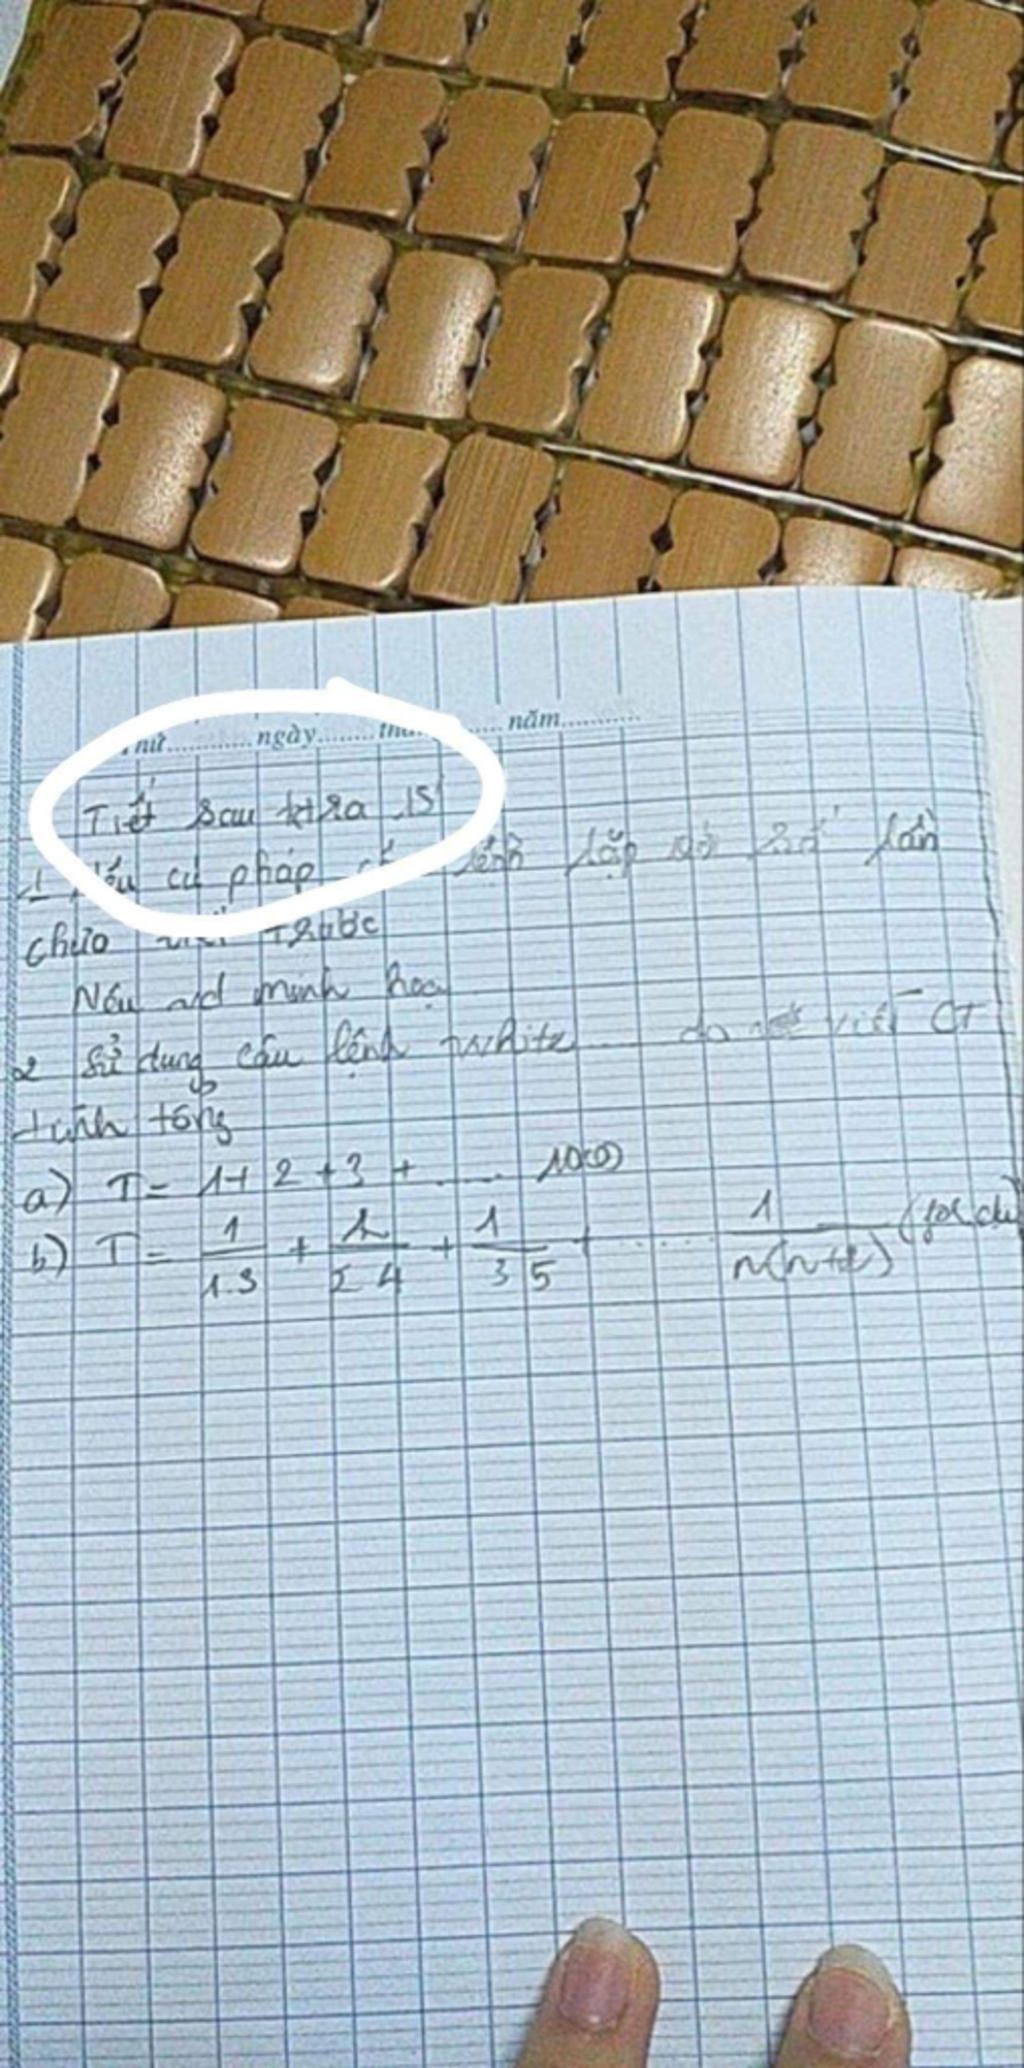 ngày........ năm............
Tiết sau ktra 15'
1 Nêu cú pháp lệnh lặp với số lần
chưa viết trước
Nêu vd minh hoạ
2 Sử dụng câu lệnh While .... do viết CT
tính tổng
a) T = 1+2+3+ ..... 1000
b) T = 1/1.3 + 1/2.4 + 1/3.5 + ..... 1/n(n+2) (for do